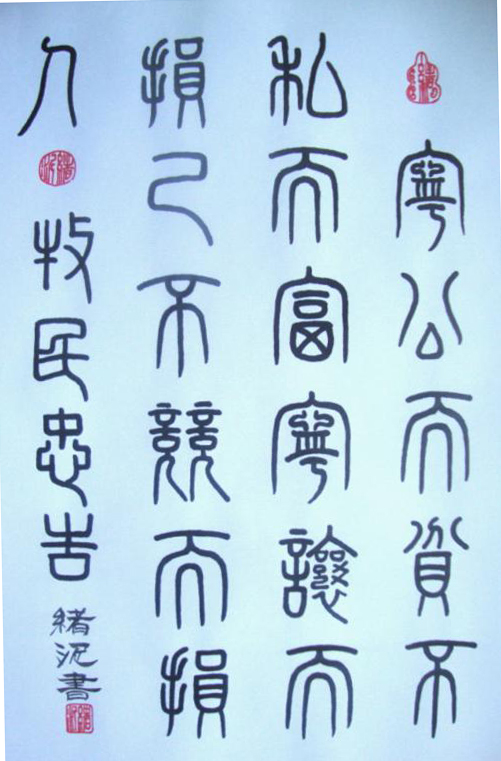 寧公而貧不
私而富寧讓而
損己不競而損
人
牧民忠告
緒書